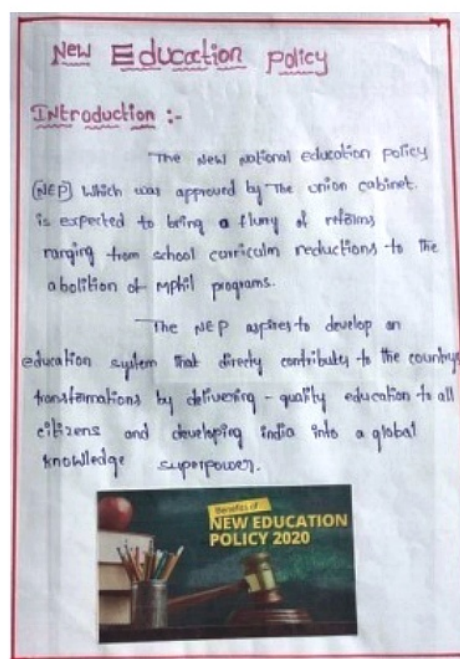 New Education Policy
Introduction :-
The New National education policy
(NEP) Which was approved by The union cabinet.
is expected to bring a flurry of reforms
ranging from school curriculm reductions to the
abolition of Mphil programs.
The NEP aspires to develop an
education system that directly contributes to the countrys
transformations by delivering - quality education to all
citizens and developing india into a global
knowledge superpower.
Benefits of
NEW EDUCATION
POLICY 2020